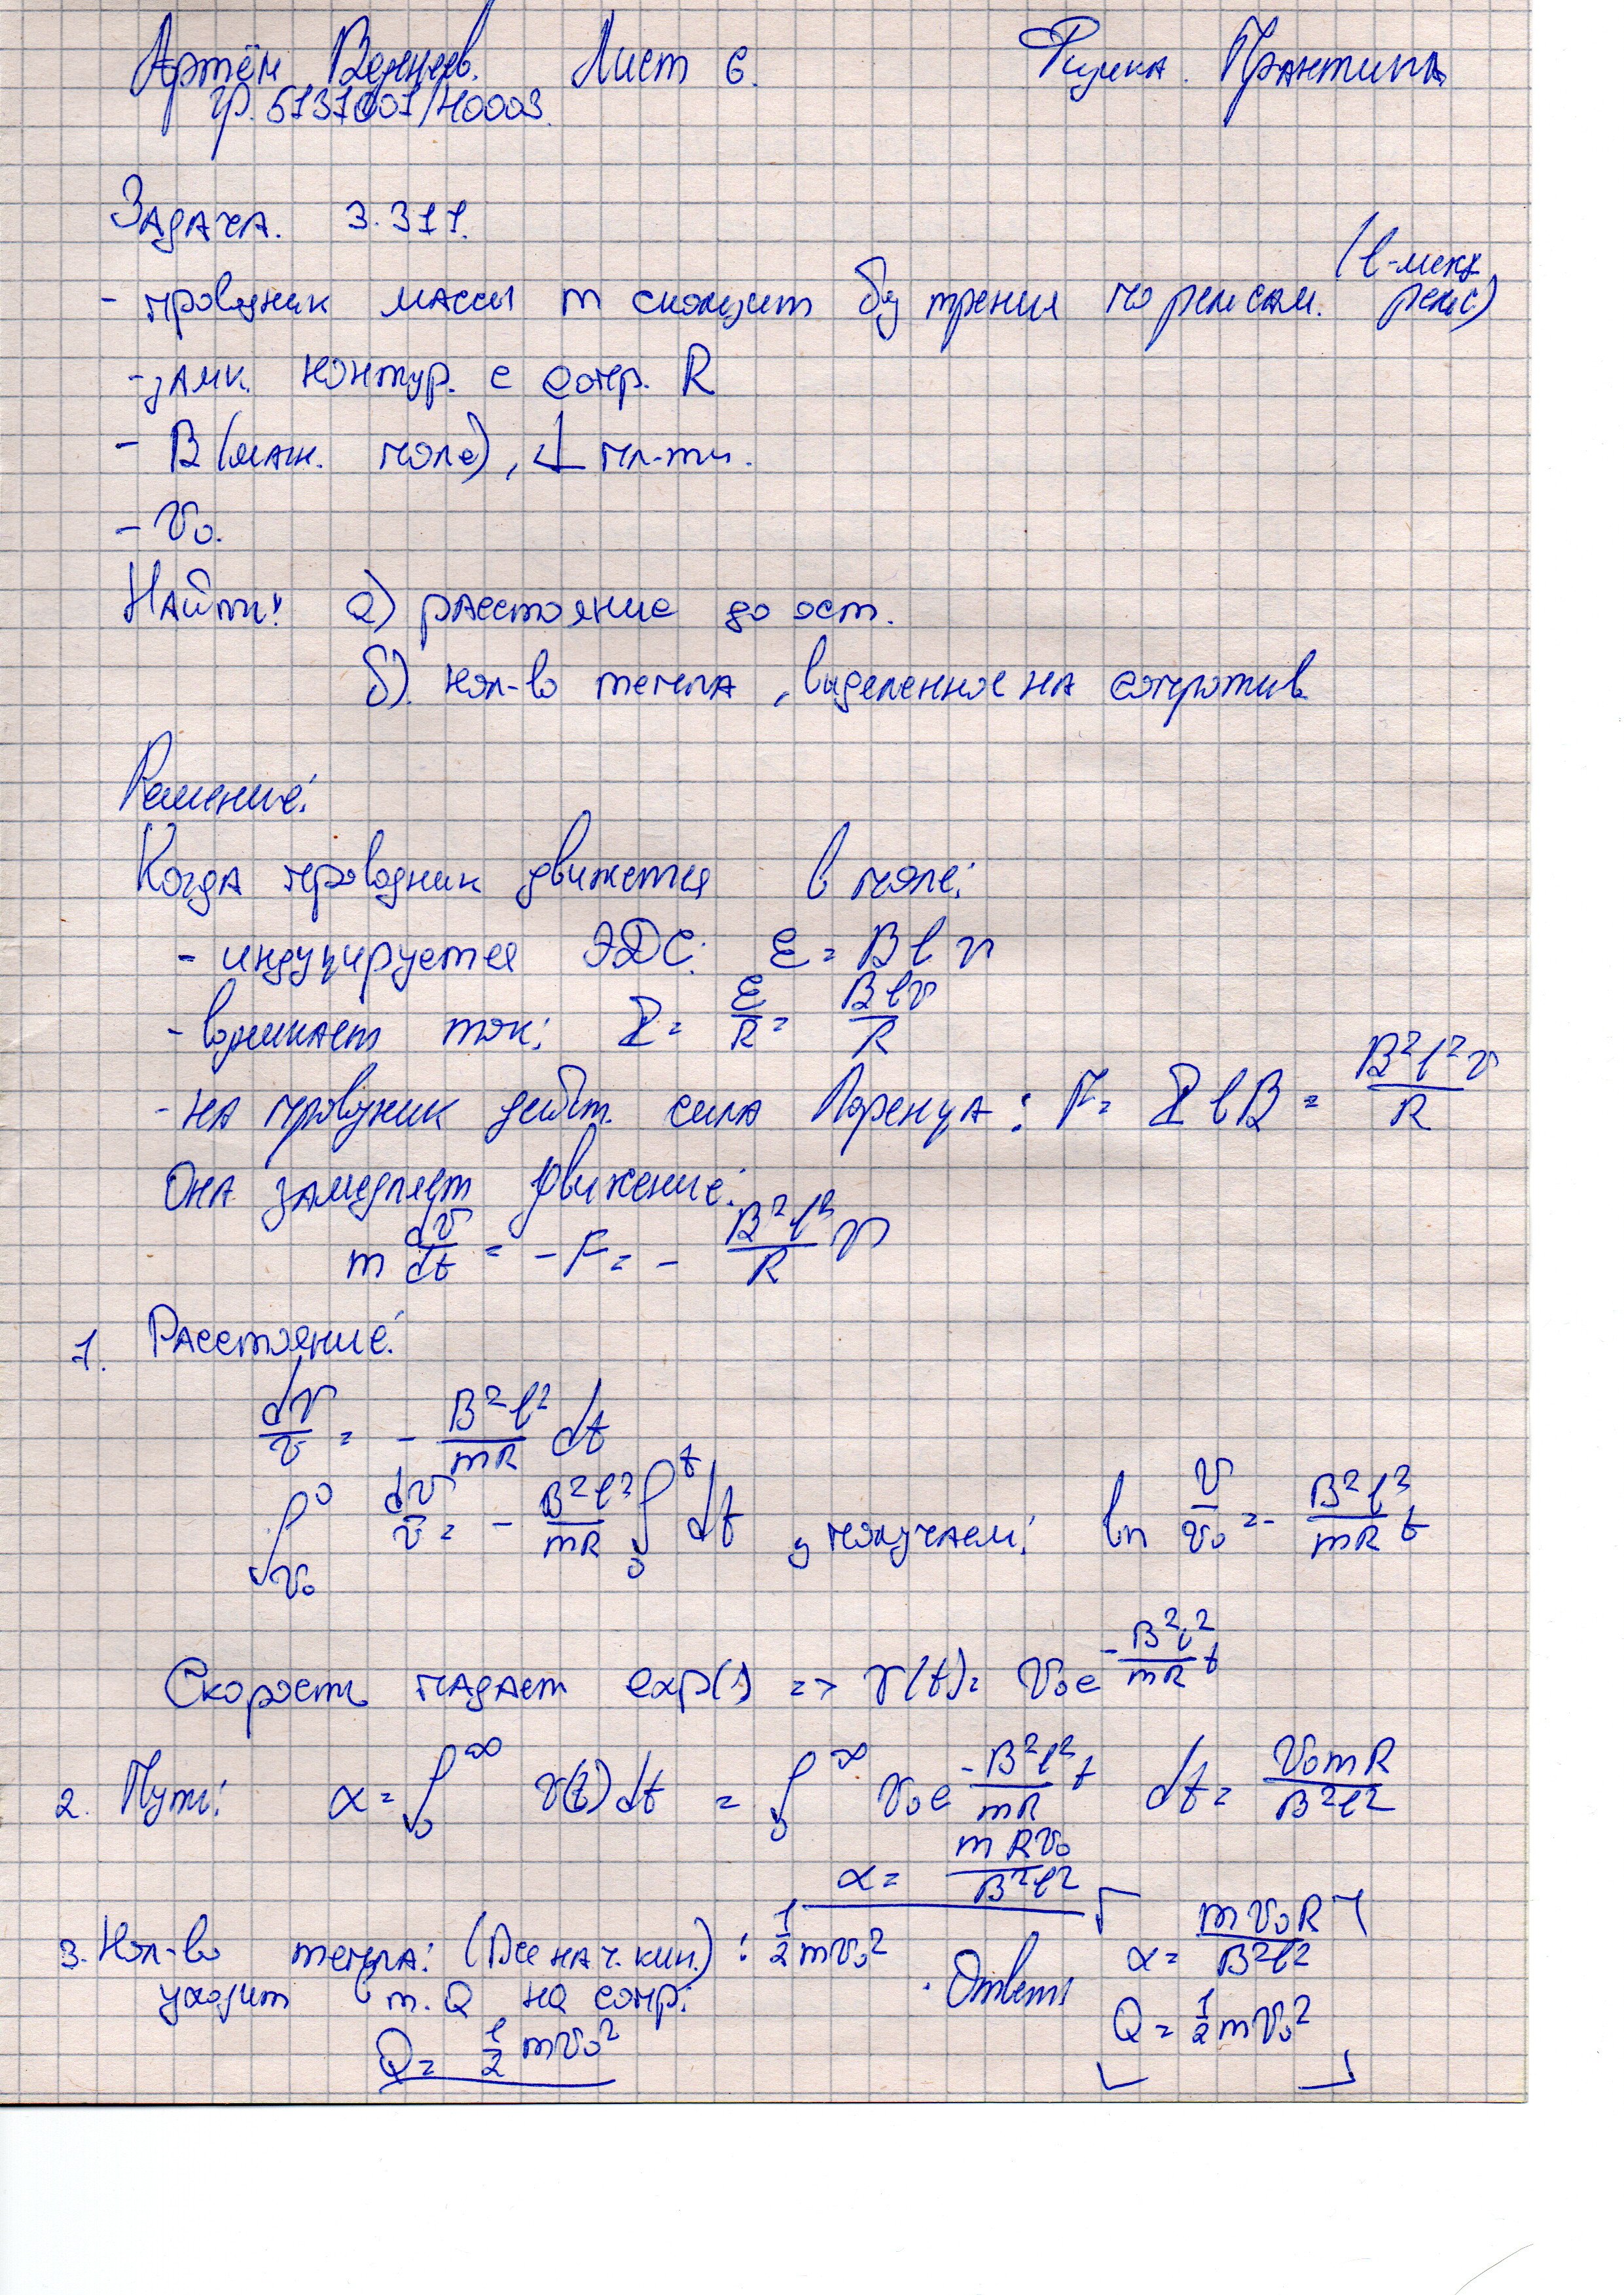 Артём Веденеев. Лист 6. Физика. Практика
гр. 5131001/40003.
Задача. 3.311.
(l-межд
- проводник массы m скользит без трения по рельсам. рельс)
- замк. контур. с сопр. R
- B (магн. поле), ⊥ пл-ти.
- v₀.
Найти: а) расстояние до ост.
б). кол-во тепла, выделенное на сопротив.
Решение:
Когда проводник движется в поле:
- индуцируется ЭДС: ℰ = Blv
- возникает ток: I = ℰ/R = Blv/R
- на проводник действ. сила Лоренца: F = IlB = B²l²v/R
Она замедляет движение:
m dv/dt = -F = - B²l²/R v
1. Расстояние:
dv/v = - B²l²/mR dt
∫_{v₀}^{0} dv/v = - B²l²/mR ∫_{0}^{t} dt, получаем: ln v/v₀ = - B²l²/mR t
Скорость падает exp() => v(t) = v₀e^{-B²l²/mR t}
2. Путь: x = ∫_{0}^{∞} v(t)dt = ∫_{0}^{∞} v₀e^{-B²l²/mR t} dt = v₀mR/B²l²
x = mRv₀/B²l²
3. Кол-во тепла: (Все нач. кин.): 1/2 mv₀²
уходит в т. Q на сопр:
Q = 1/2 mv₀²
Ответ: x = mv₀R/B²l²
Q = 1/2 mv₀²